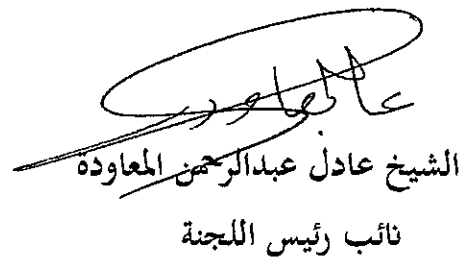 الشيخ عادل عبدالرحمن المعاودة
نائب رئيس اللجنة